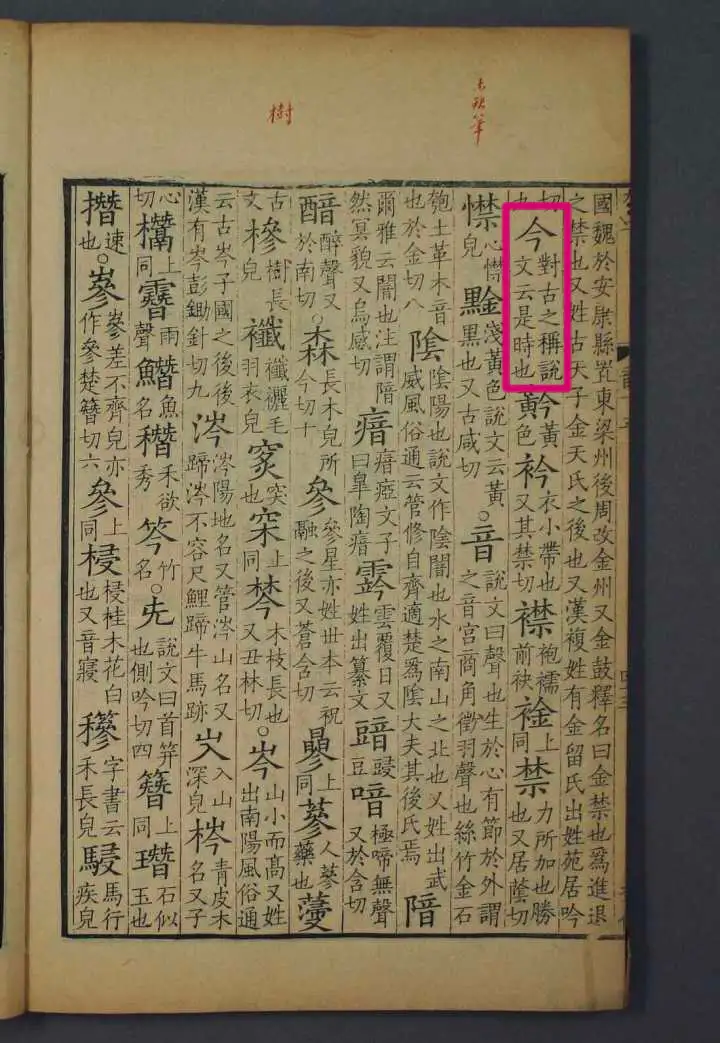 樹
國魏於安康縣置東梁州後周改金州又金鼓釋名曰金禁也爲進退之禁也又姓古天子金天氏之後也又漢複姓有金留氏出姓苑居吟
切九今對古之稱說文云是時也黅黃色衿衣小帶也又其禁切襟袍襦前袂䘳上同禁力所加也勝也又居蔭切
㦗心㦗皃䵖淺黃色說文云黃黑也又古咸切。音說文曰聲也生於心有節於外謂之音宮商角徵羽聲也絲竹金石
匏土革木音也於金切八陰陰陽也說文作陰闇也水之南山之北也又姓出武威風俗通云管修自齊適楚爲陰大夫其後氏焉隌
爾雅云闇也注謂隌然冥貌又烏感切瘖瘖瘂文子曰皐陶瘖霒雲覆日又姓出纂文䜾豉豆喑極啼無聲又於含切
醉聲又於南切。森長木皃所今切十參參星亦姓世本云祝融之後又蒼含切曑上同蔘人蔘藥也
古文槮樹長皃襳襳襹毛羽衣皃突也穼上同棽木枝長也又丑林切。岑山小而高又姓出南陽風俗通
云古岑子國之後後漢有岑彭鋤針切九涔涔陽地名又管涔山名又蹄涔不容尺鯉蹄牛馬跡入山深皃梣青皮木名又子
心切上同雨聲魚名禾欲秀笒竹名。兂說文曰首笄也側吟切四簪上同石似玉也
撍速也。嵾嵾差不齊皃亦作參楚簪切六參上同梫梫桂木花白也又音寢穇字書云禾長皃駸馬行疾皃